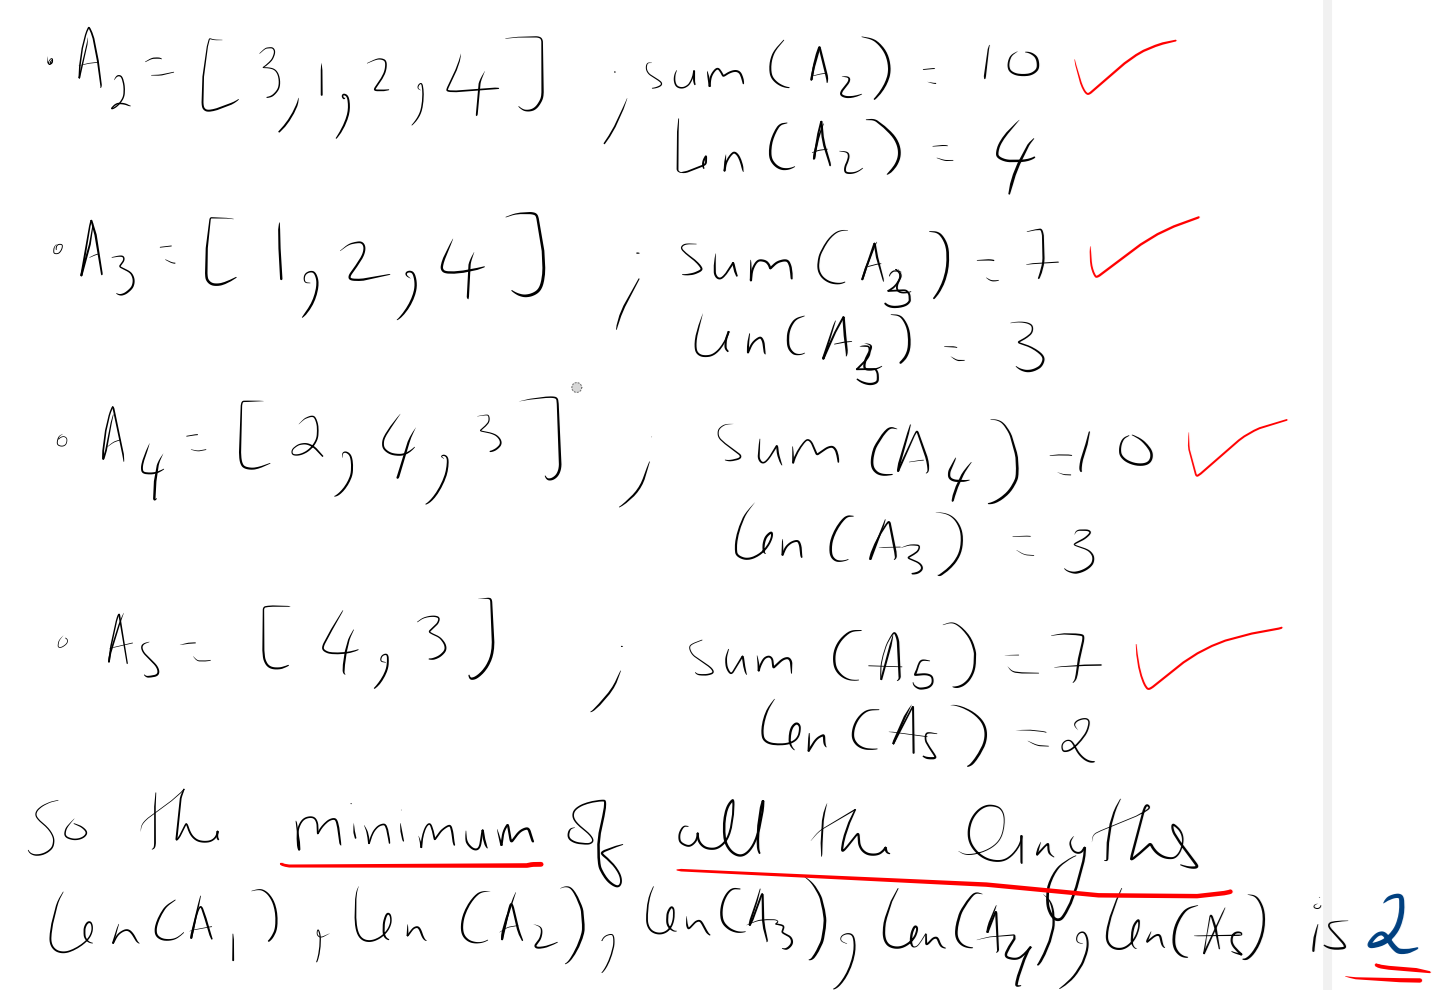 · A2 = [3, 1, 2, 4] ; sum(A2) = 10 ✓
len(A2) = 4
∘ A3 = [1, 2, 4] ; sum(A3) = 7 ✓
len(A3) = 3
∘ A4 = [2, 4, 3] ; sum(A4) = 10 ✓
len(A3) = 3
∘ A5 = [4, 3] ; sum(A5) = 7 ✓
len(A5) = 2
so the minimum of all the lengths
len(A1), len(A2), len(A3), len(A4), len(A5) is 2